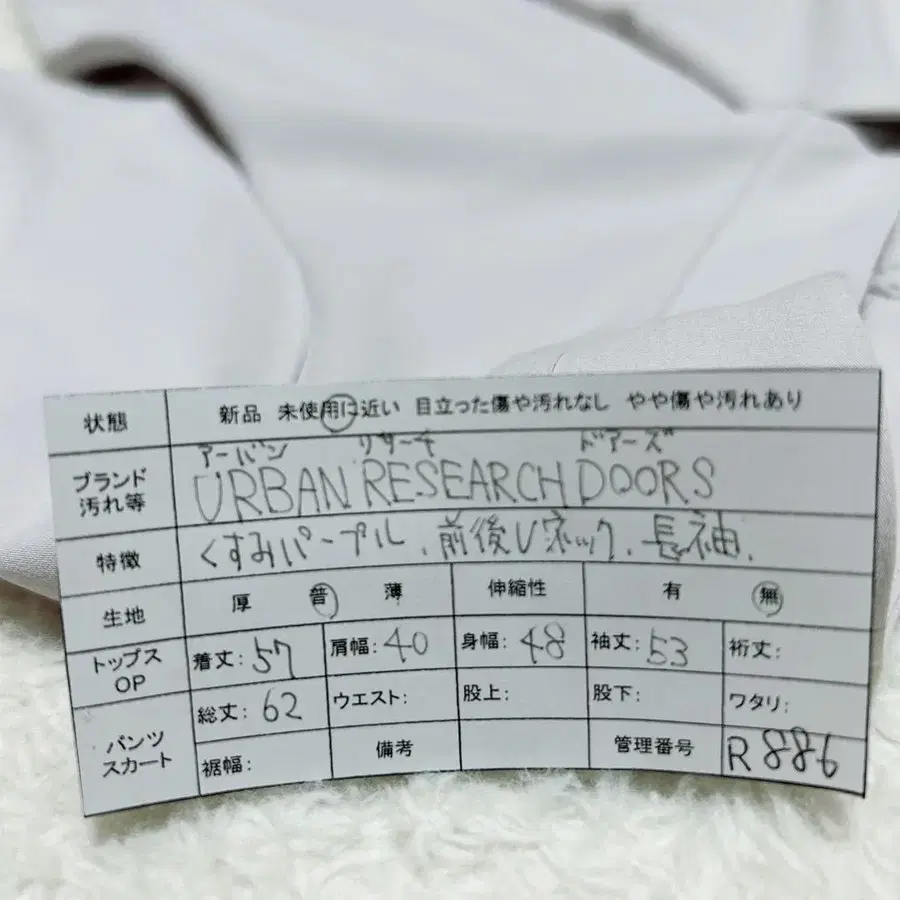 状態 新品 未使用に近い 目立った傷や汚れなし やや傷や汚れあり
アーバン リサーチ ドアーズ
ブランド 汚れ等 URBAN RESEARCH DOORS
特徴 くすみパープル、前後Vネック、長袖、
生地 厚 普 薄 伸縮性 有 無
トップス OP 着丈:57 肩幅:40 身幅:48 袖丈:53 裄丈:
パンツ スカート 総丈:62 ウエスト: 股上: 股下: ワタリ:
裾幅: 備考 管理番号 R886